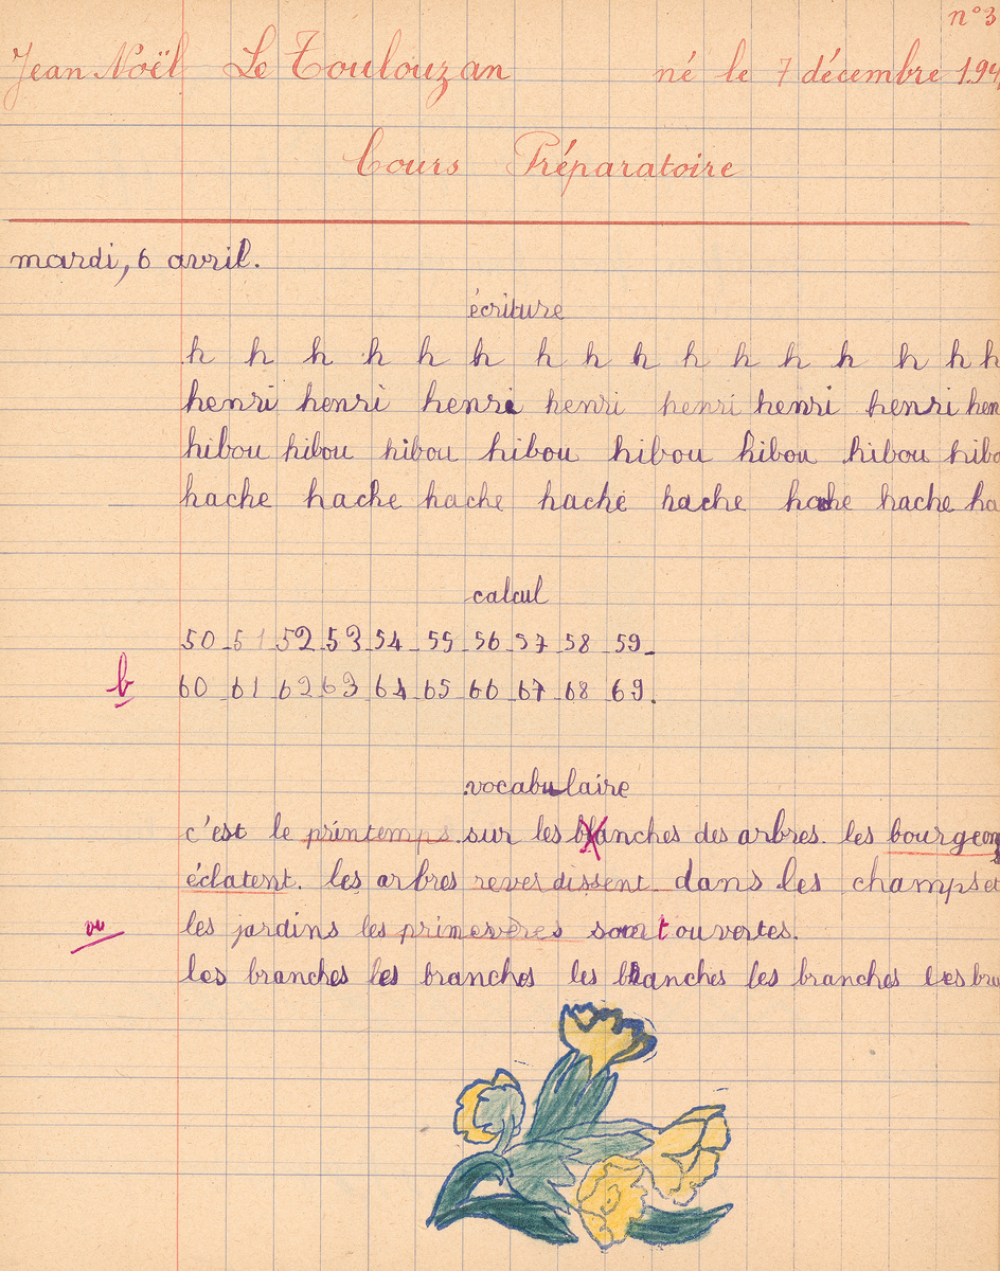 n°3
Jean Noël Le Toulouzan né le 7 décembre 194
Cours Préparatoire
mardi, 6 avril.
écriture
h h h h h h h h h h h h h h h h
henri henri henri henri henri henri henri hen
hibou hibou hibou hibou hibou hibou hibou hibo
hache hache hache hache hache hache hache ha
calcul
50_51_52_53_54_55_56_57_58_59_
b 60_61_62_63_64_65_66_67_68_69.
vocabulaire
c'est le printemps. sur les blanches des arbres. les bourgeons
éclatent. les arbres reverdissent. dans les champs et
vu les jardins les primevères sont ouvertes.
les branches les branches les branches les branches les bra